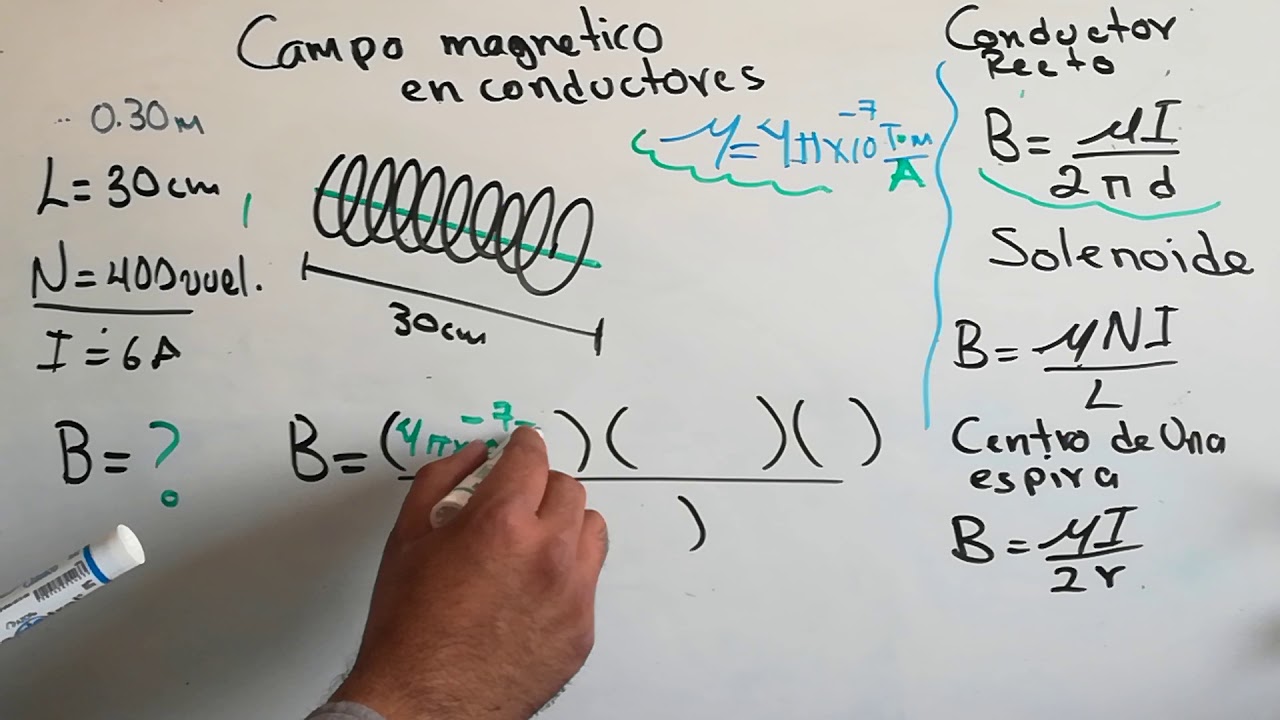 Campo magnetico
en conductores
0.30m
L=30cm
N=400vuel.
I=6A
B=?
30cm
μ=4π×10⁻⁷ T·m/A
B=(4π×
-7
)( )( )
)
Conductor
Recto
B=μI/2πd
Solenoide
B=μNI/L
Centro de Una
espira
B=μI/2r